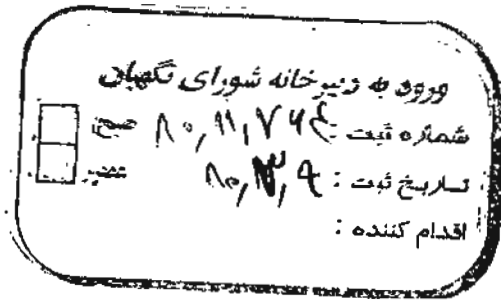 ورود به دبیرخانه شورای نگهبان
شماره ثبت : ۸۰,۲۱,۷۶۴ صبح
تاریخ ثبت : ۸۰,۳,۹ عصر
اقدام کننده :